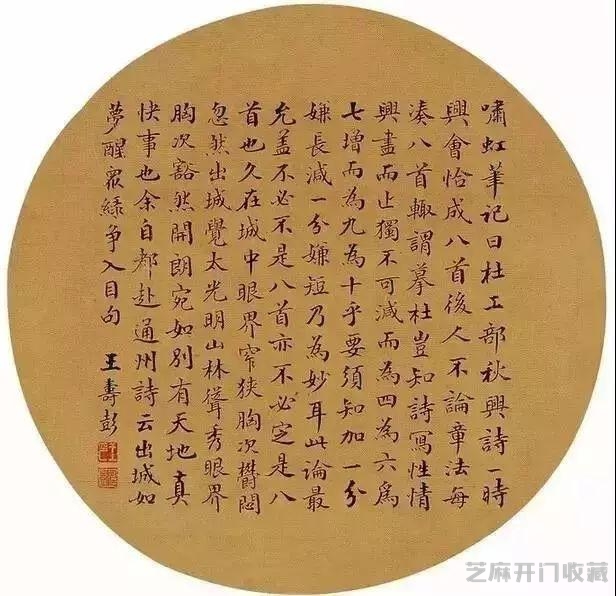 嘯虹筆記曰杜工部秋興詩一時
興會恰成八首後人不論章法每
湊八首輙謂摹杜豈知詩寫性情
興盡而止獨不可減而為四為六爲
七增而為九為十乎要須知加一分
嫌長減一分嫌短乃為妙耳此論最
允蓋不必不是八首亦不必定是八
首也久在城中眼界窄狹胸次欝悶
忽然出城覺太光明山林聳秀眼界
胸次豁然開朗宛如別有天地真
快事也余自都赴通州詩云出城如
夢醒眾緑争入目句
王壽彭
芝麻开门收藏